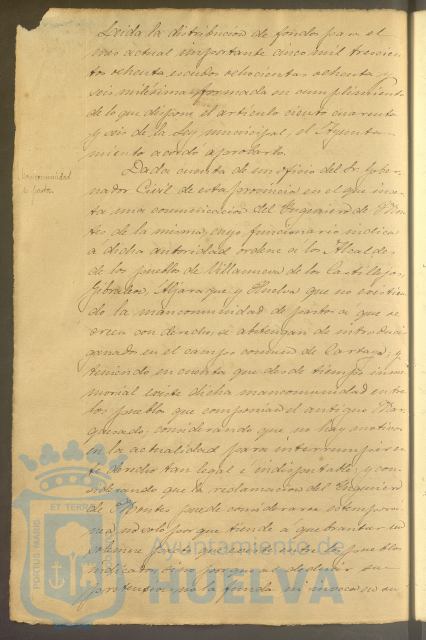 Leida la distribucion de fondos para el
mes actual importante cinco mil trescien
tos ochenta escudos ochocientas ochenta y
seis milésimas formada en cumplimiento
de lo que dispone el articulo ciento cuarenta
y seis de la Ley municipal, el Ayunta-
miento acordó aprobarla.
Mancomunidad
de pastos.
Dada cuenta de un oficio del Sr. Gober-
nador Civil de esta provincia en el que inser
ta una comunicacion del Ingeniero de Mon
tes de la misma, cuyo funcionario indica
á dicha autoridad ordene á los Alcaldes
de los pueblos de Villanueva de los Castillejos,
Gibraleon, Aljaraque y Huelva que no existien
do la mancomunidad de pastos á que se
creen con derecho, se abstengan de introducir
ganados en el campo comun de Cartaya, y
teniendo en cuenta que desde tiempo inme
morial existe dicha mancomunidad entre
los pueblos que componian el antiguo Mar
quesado; considerando que no hay motivo
en la actualidad para interrumpir es
te derecho tan legal é indisputable, y con
siderando que la reclamacion del Ingeniero
de Montes puede considerarse estempora
nea no solo por que tiende á quebrantar un
solemne pacto que existe entre los pueblos
indicados, sino por que al deducir su
pretension no la funda ni invoca en su
PORTUS MARIS
ET TERRAE
Ayuntamiento de
HUELVA